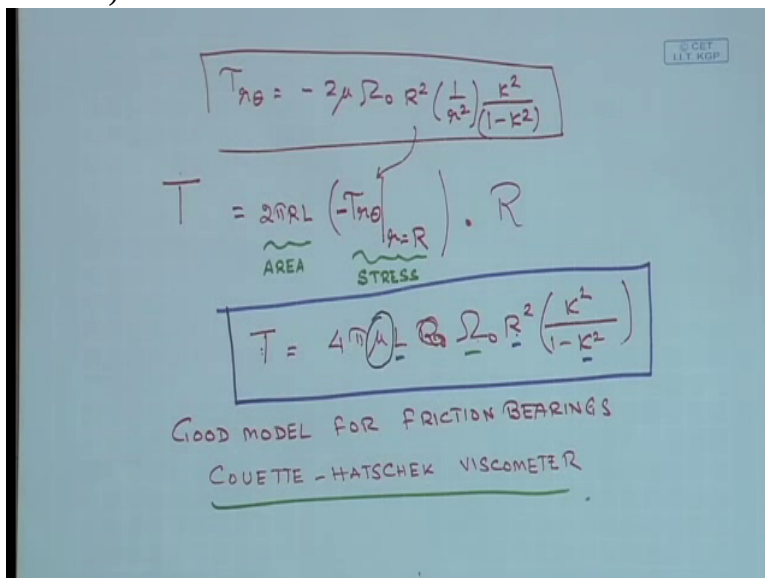 © CET
I.I.T. KGP
τrθ = - 2μ Ω₀ R² (1/r²) κ²/(1-κ²)
T = 2πRL (-τrθ|r=R) . R
AREA STRESS
T = 4πμL Ω₀ R² (κ²/(1-κ²))
GOOD MODEL FOR FRICTION BEARINGS
COUETTE - HATSCHEK VISCOMETER.